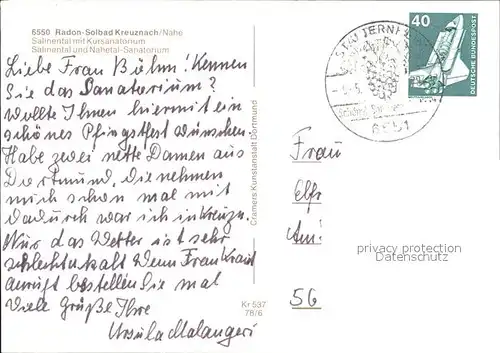 6550 Radon-Solbad Kreuznach/Nahe
Salinental mit Kursanatorium
Salinental und Nahetal-Sanatorium
Liebe Frau Bühm! Kennen
Sie das Sanatorium?
Wollte Ihnen hiermit ein
schönes Pfingstfest wünschen.
Habe zwei nette Damen aus
Dortmund, die nehmen
mich schon mal mit
dadurch war ich in Kreuzn.
Nur das Wetter ist sehr
schlecht u kalt Wenn Frau Kraut
anruft bestellen Sie mal
viele Grüße Ihre
Ursula Malangeri
Cramers Kunstanstalt Dortmund
Kr 597
78/6
6551
40
DEUTSCHE BUNDESPOST
Frau
Elfr
Am
56
privacy protection
Datenschutz